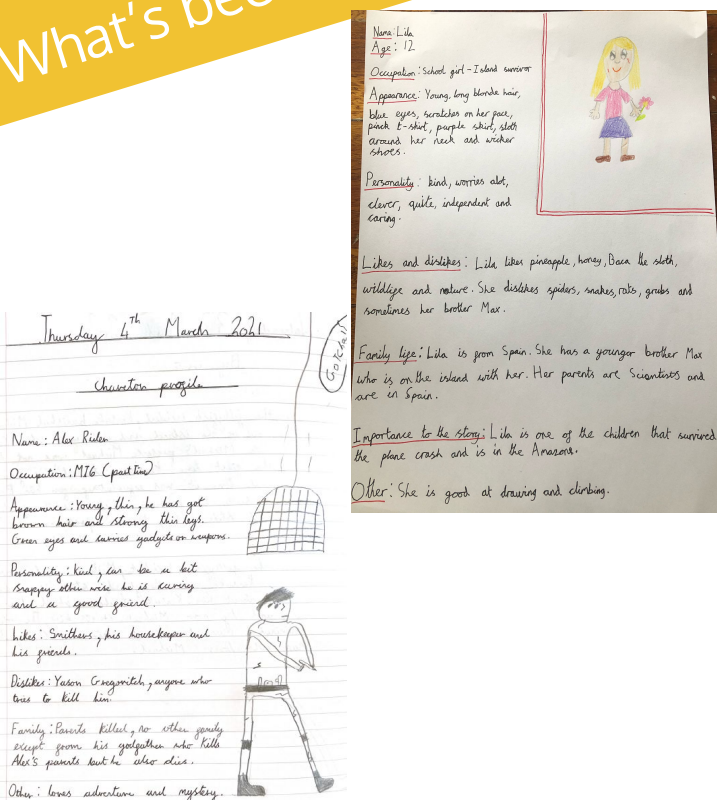 What's bec
Name: Lila
Age: 12
Occupation: School girl - Island survivor
Appearance: Young, long blonde hair,
blue eyes, scratches on her face,
pinck t-shirt, purple skirt, sloth
around her neck and wicker
shoes.
Personality: kind, worries alot,
clever, quite, independent and
caring.
Likes and dislikes: Lila likes pineapple, honey, Baca the sloth,
wildlife and nature. She dislikes spiders, snakes, rats, grubs and
sometimes her brother Max.
Family life: Lila is from Spain. She has a younger brother Max
who is on the island with her. Her parents are Scientists and
are in Spain.
Importance to the story: Lila is one of the children that survived
the plane crash and is in the Amazons.
Other: She is good at drawing and climbing.
Thursday 4th March 2021
Gotcha!!
Name: Alex Rider
Occupation: MI6 (part time)
Appearance: Young, thin, he has got
brown hair and strong thin legs.
Green eyes and carries gadgets or weapons.
Personality: kind, can be a bit
snappy other wise he is caring
and a good friend.
Likes: Smithers, his housekeeper and
his friends.
Dislikes: Yason Gregovitch, anyone who
tries to kill him.
Family: Parents killed, no other family
except from his godfather who kills
Alex's parents but he also dies.
Other: loves adventure and mystery.